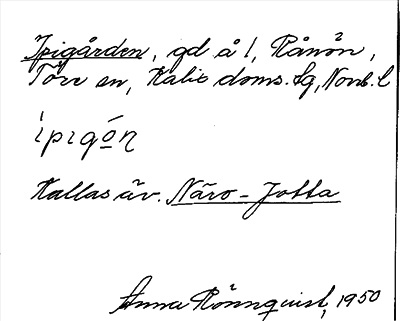 Ipigården, gd å 1, Rånön,
Töre sn, Kalix doms. sg, Norrb. l
ipigón
Kallas äv. Näro-Jotta
Anna Rönnquist, 1950